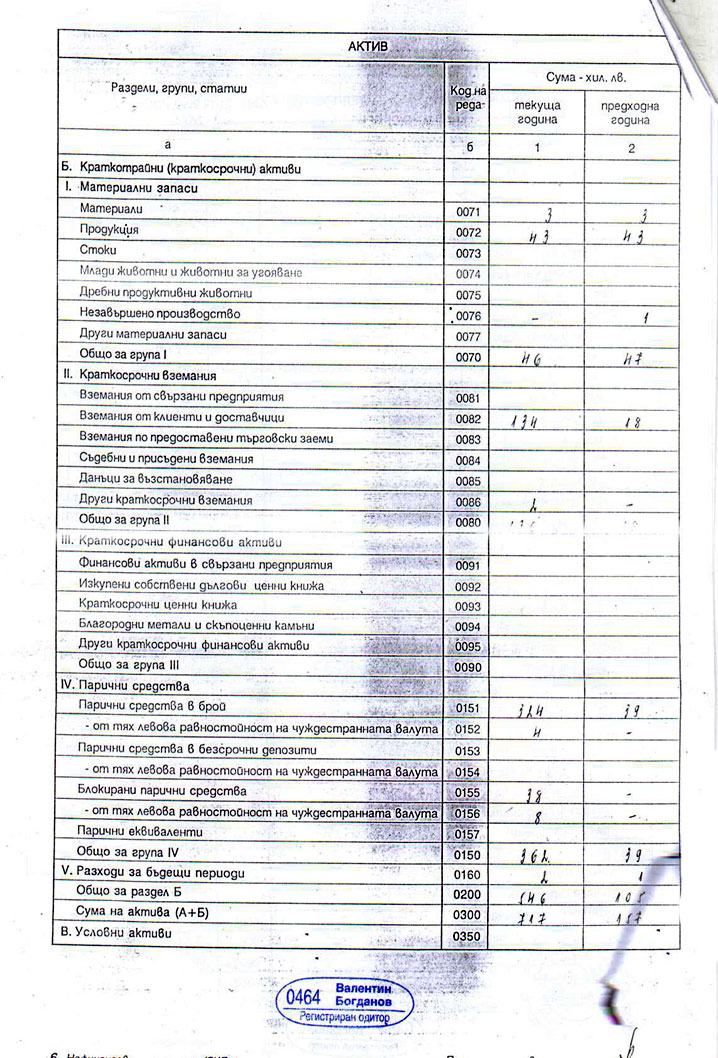 АКТИВ
Раздели, групи, статии Код на реда Сума - хил. лв.
текуща година предходна година
а б 1 2
Б. Краткотрайни (краткосрочни) активи
I. Материални запаси
Материали 0071 3 3
Продукция 0072 43 43
Стоки 0073
Млади животни и животни за угояване 0074
Дребни продуктивни животни 0075
Незавършено производство 0076 - 1
Други материални запаси 0077
Общо за група I 0070 46 47
II. Краткосрочни вземания
Вземания от свързани предприятия 0081
Вземания от клиенти и доставчици 0082 134 18
Вземания по предоставени търговски заеми 0083
Съдебни и присъдени вземания 0084
Данъци за възстановяване 0085
Други краткосрочни вземания 0086 2 -
Общо за група II 0080
III. Краткосрочни финансови активи
Финансови активи в свързани предприятия 0091
Изкупени собствени дългови ценни книжа 0092
Краткосрочни ценни книжа 0093
Благородни метали и скъпоценни камъни 0094
Други краткосрочни финансови активи 0095
Общо за група III 0090
IV. Парични средства
Парични средства в брой 0151 324 39
- от тях левова равностойност на чуждестранната валута 0152 4 -
Парични средства в безсрочни депозити 0153
- от тях левова равностойност на чуждестранната валута 0154
Блокирани парични средства 0155 38 -
- от тях левова равностойност на чуждестранната валута 0156 8 -
Парични еквиваленти 0157
Общо за група IV 0150 362 39
V. Разходи за бъдещи периоди 0160 2 1
Общо за раздел Б 0200 546 105
Сума на актива (А+Б) 0300 717
В. Условни активи 0350
0464 Валентин Богданов
Регистриран одитор